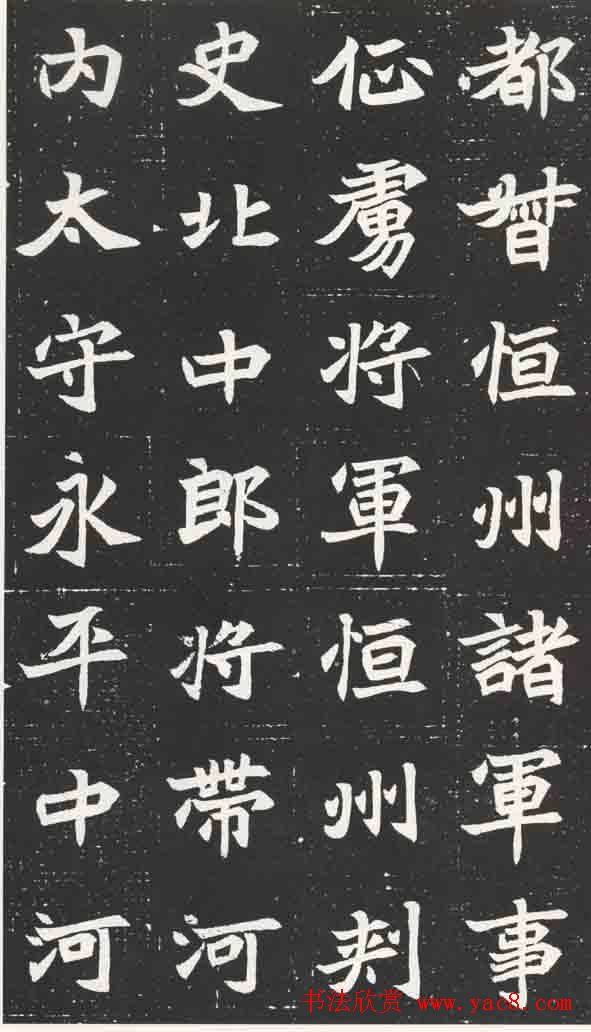 都督恒州諸軍事
征虜将軍恒州刺
史北中郎将帶河
内太守永平中河
书法欣赏 www.yac8.com